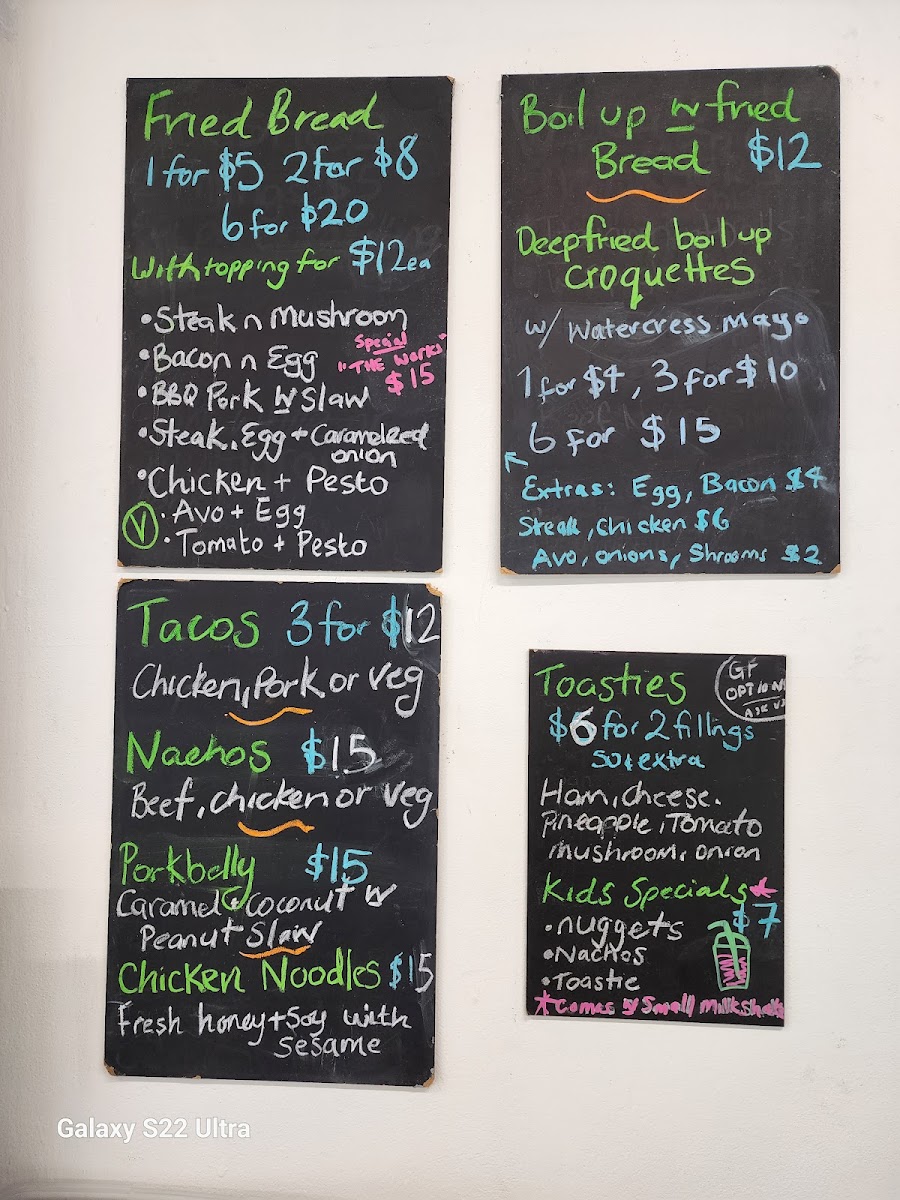 Fried Bread
1 for $5 2 for $8
6 for $20
With topping for $12ea
•Steak n Mushroom
•Bacon n Egg
Special
"THE Works"
$15
•BBQ Pork w Slaw
•Steak, Egg + Caramelized
onion
•Chicken + Pesto
V
•Avo + Egg
•Tomato + Pesto
Boil up w fried
Bread $12
Deepfried boil up
croquettes
w/ Watercress Mayo
1 for $4, 3 for $10
6 for $15
Extras: Egg, Bacon $4
Steak, Chicken $6
Avo, onions, Shrooms $2
Tacos 3 for $12
Chicken, Pork or Veg
Nachos $15
Beef, chicken or Veg
Porkbelly $15
Caramel + Coconut w
Peanut Slaw
Chicken Noodles $15
Fresh honey + Soy with
Sesame
GF
OPTION
ASK US
Toasties
$6 for 2 fillings
50¢ extra
Ham, cheese.
Pineapple, Tomato
Mushroom, onion
Kids Specials*
$7
•nuggets
•Nachos
•Toastie
*Comes w/ Small Milkshake
Galaxy S22 Ultra